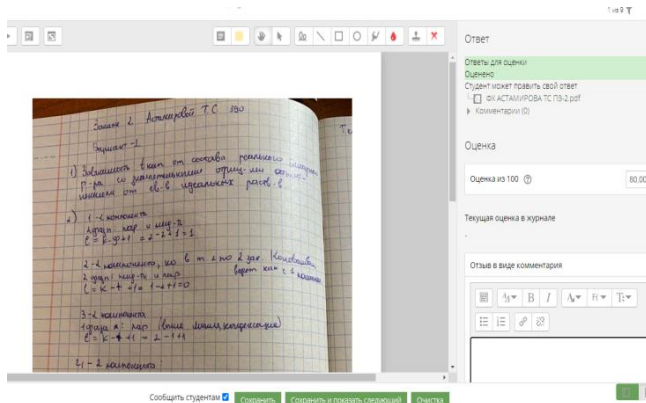 1 из 9
Ответ
Ответы для оценки
Оценено
Студент может править свой ответ
ФХ АСТАМИРОВА ТС ПЗ-2.pdf
Комментарии (0)
Оценка
Оценка из 100
80,00
Текущая оценка в журнале
-
Отзыв в виде комментария
Астамировой Т.С 390
Вариант-2
1) Зависимость
состава реального
р-ра со
отриц-ми
от св-в идеальных раств-в
2) 1-2 компонента
2 фазы: пар и жид-ть
C = K-Ф+1 = 2-2+1=1
2-2 компонента, но в т 2 по 2 зак. Коновалова
2 фазы: жид-ть и пар
C = K-Ф+1= 1-2+1=0
3-2 компонента
1 фаза
пар (выше линии конденсации)
C = K-Ф+1 = 2-1+1
2 компонента
Сообщить студентам
Сохранить
Сохранить и показать следующий
Очистка